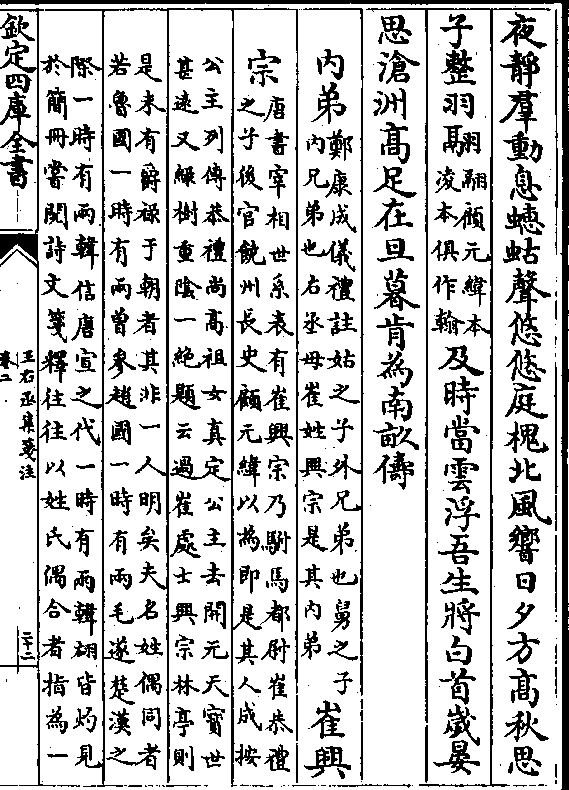 夜靜羣動息蟪蛄聲悠悠庭槐北風響日夕方高秋思
子整羽翮羽翮顧元緯本凌本俱作翰及時當雲浮吾生將白首歲晏
思滄洲高足在旦暮肯為南畝儔
内弟鄭康成儀禮註姑之子外兄弟也舅之子内兄弟也右丞母崔姓興宗是其内弟崔興
宗唐書宰相世系表有崔興宗乃駙馬都尉崔恭禮之子後官饒州長史顧元緯以為即是其人成按
公主列傳恭禮尚高祖女真定公主去開元天寳世甚逺又綠樹重陰一絶題云過崔處士興宗林亭則
是未有爵禄于朝者其非一人明矣夫名姓偶同者若魯國一時有兩曾參趙國一時有兩毛遂楚漢之
際一時有兩韓信唐宣之代一時有兩韓翃皆灼見於簡冊嘗閱詩文箋釋往往以姓氏偶合者指為一
欽定四庫全書
王右丞集箋注
卷二
二十二